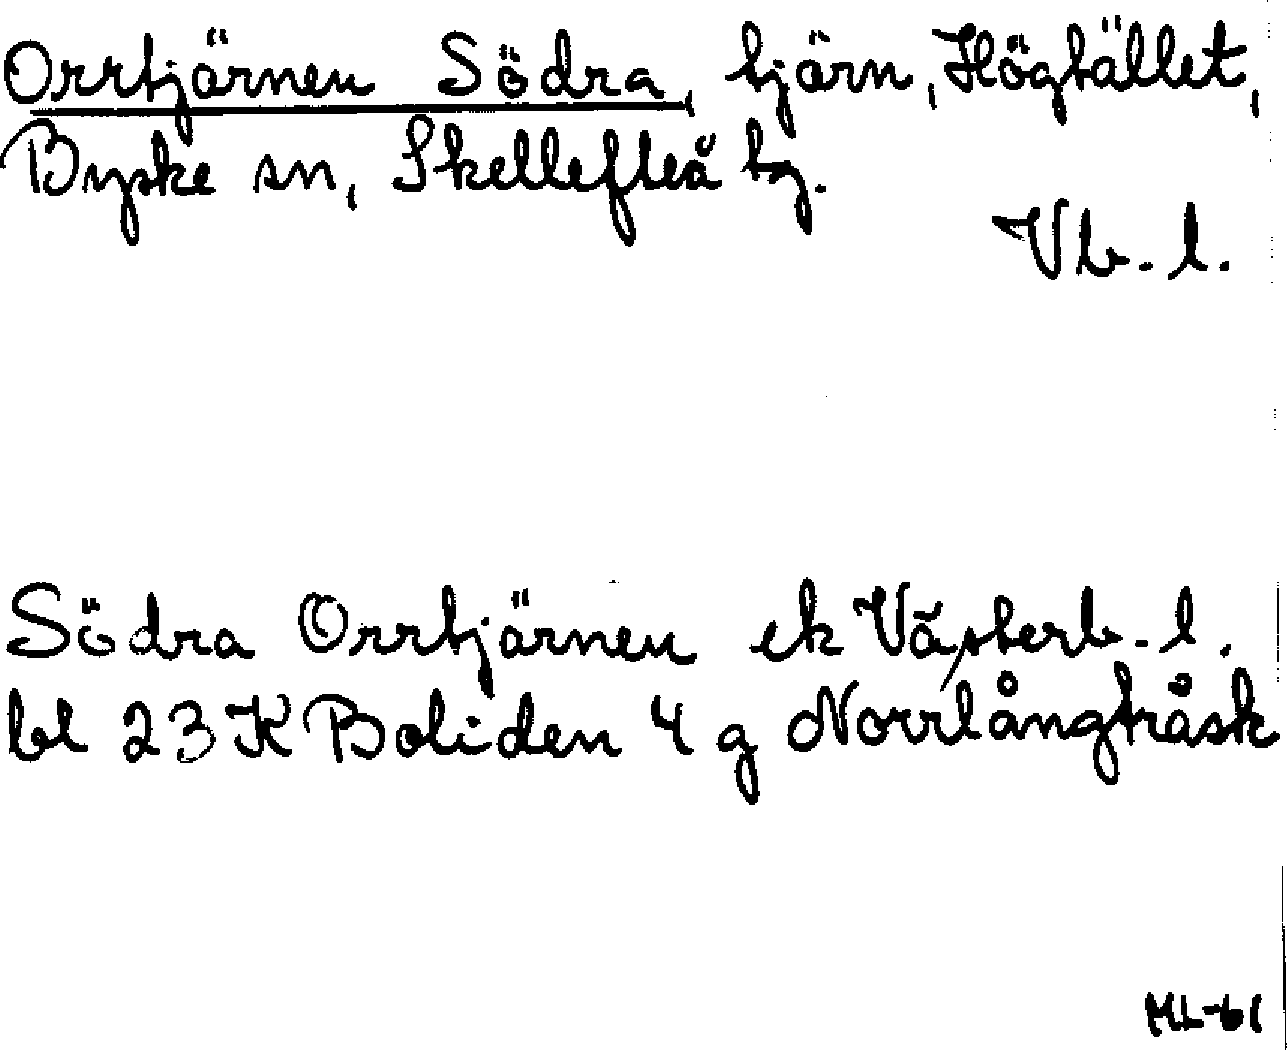 Orrtjärnen Södra, tjärn, Högtället,
Byske sn, Skellefteå tg.
Vb. l.
Södra Orrtjärnen ek Västerb. l.
bl 23 K Boliden 4 g Norrlångträsk
ML-61